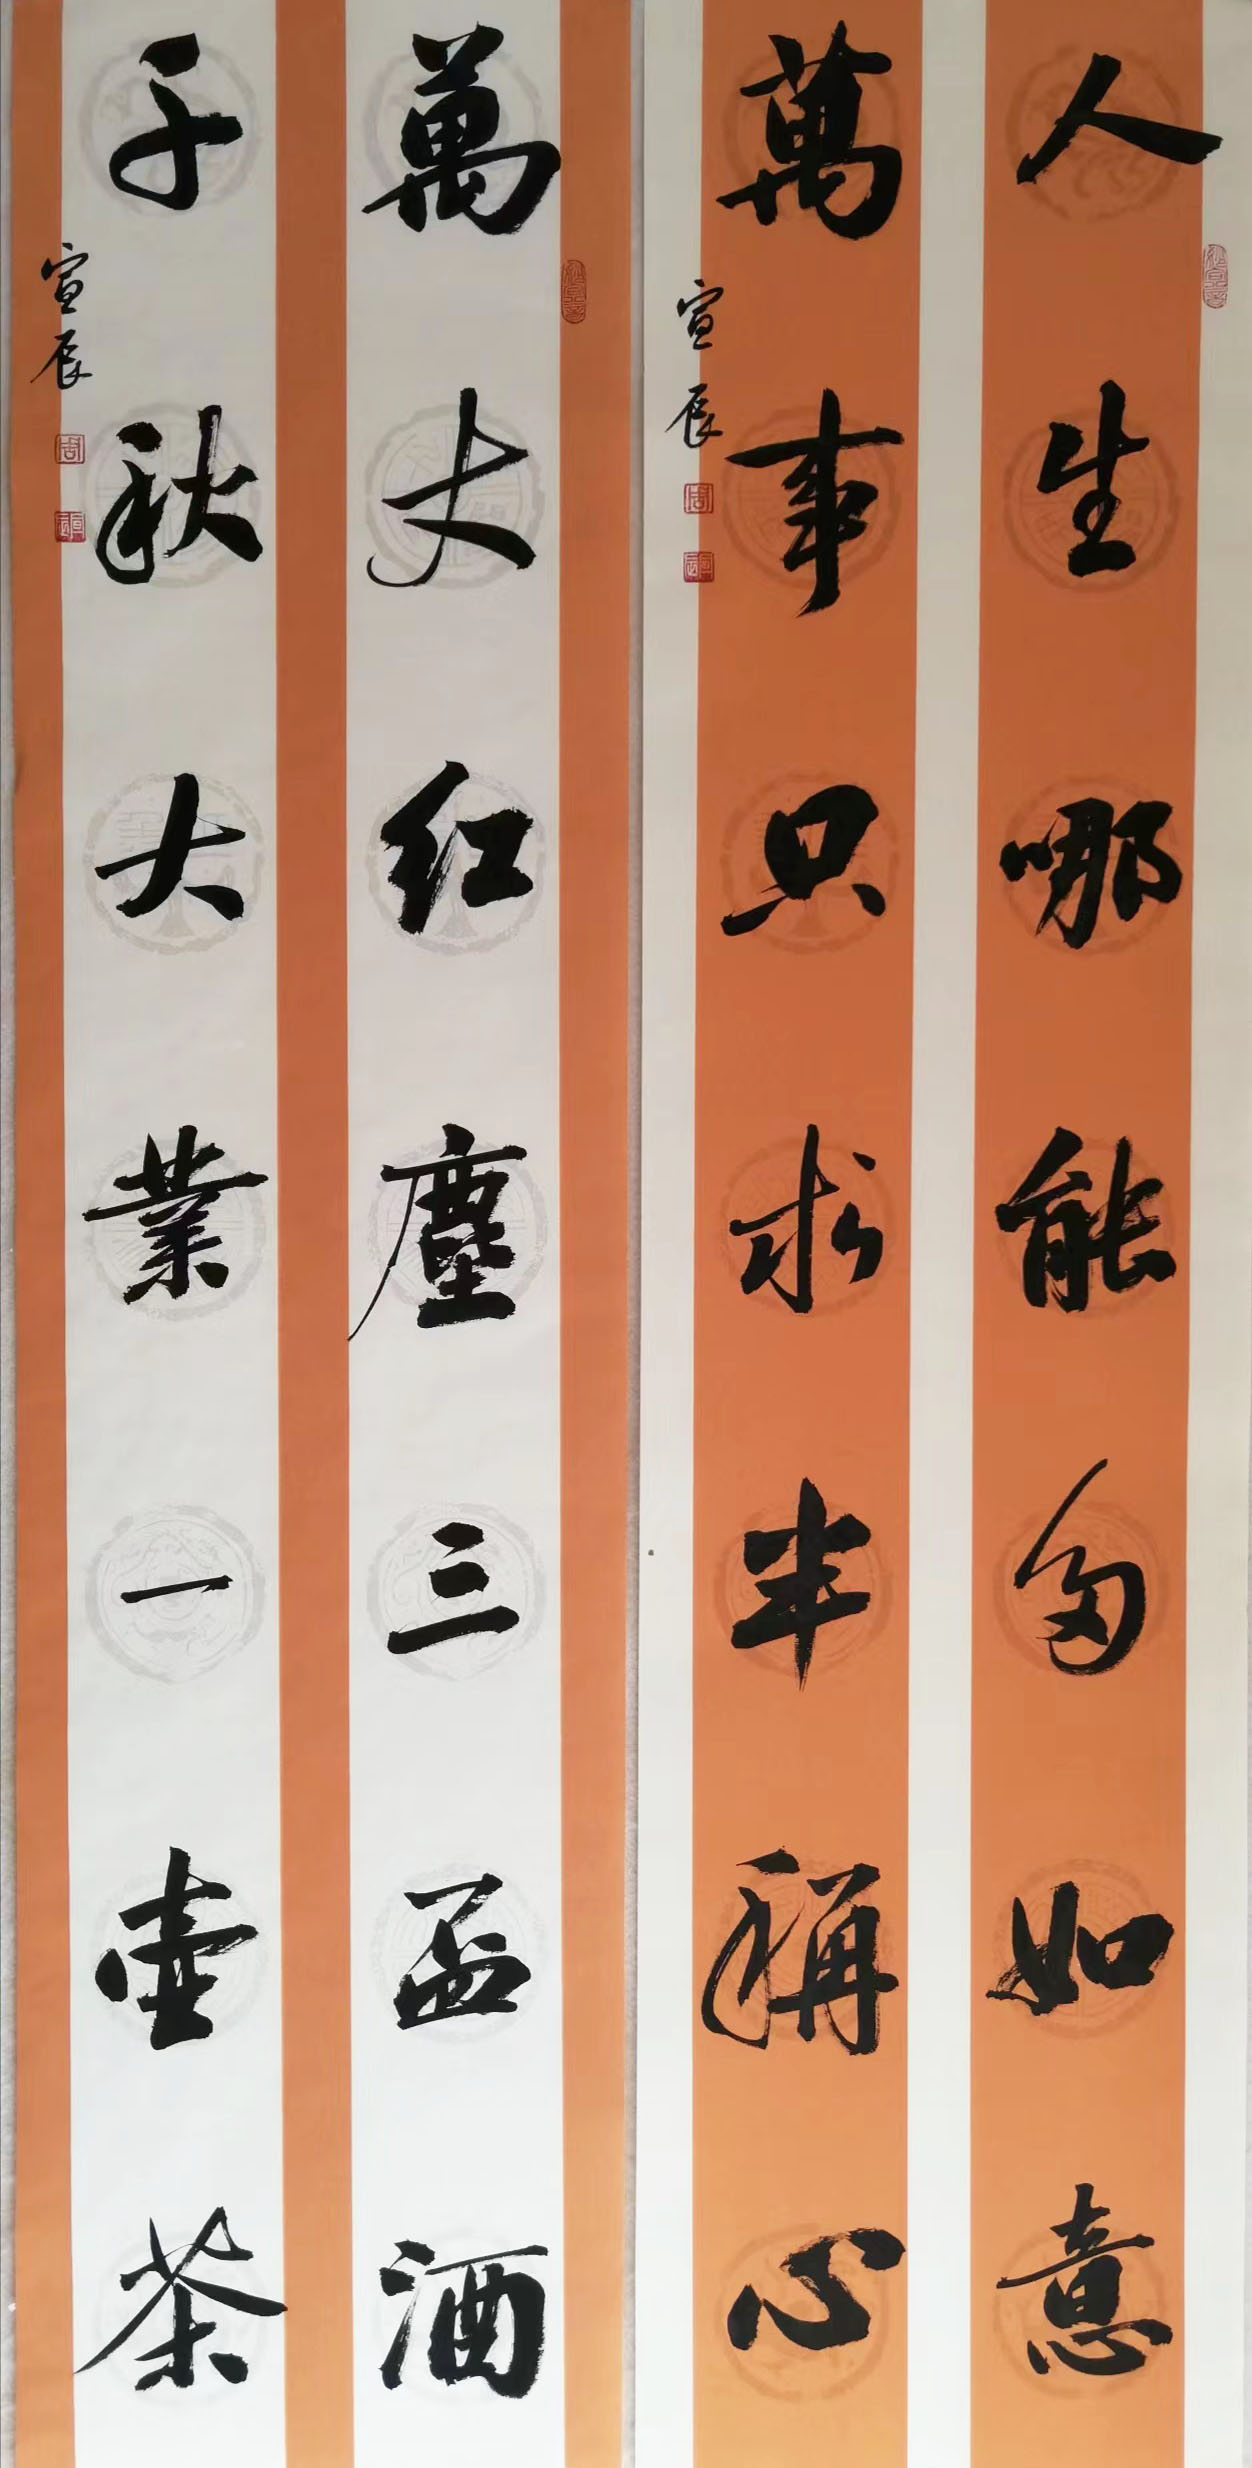 人生哪能多如意
萬事只求半稱心
宣辰
萬丈红塵三盃酒
千秋大業一壺茶
宣辰